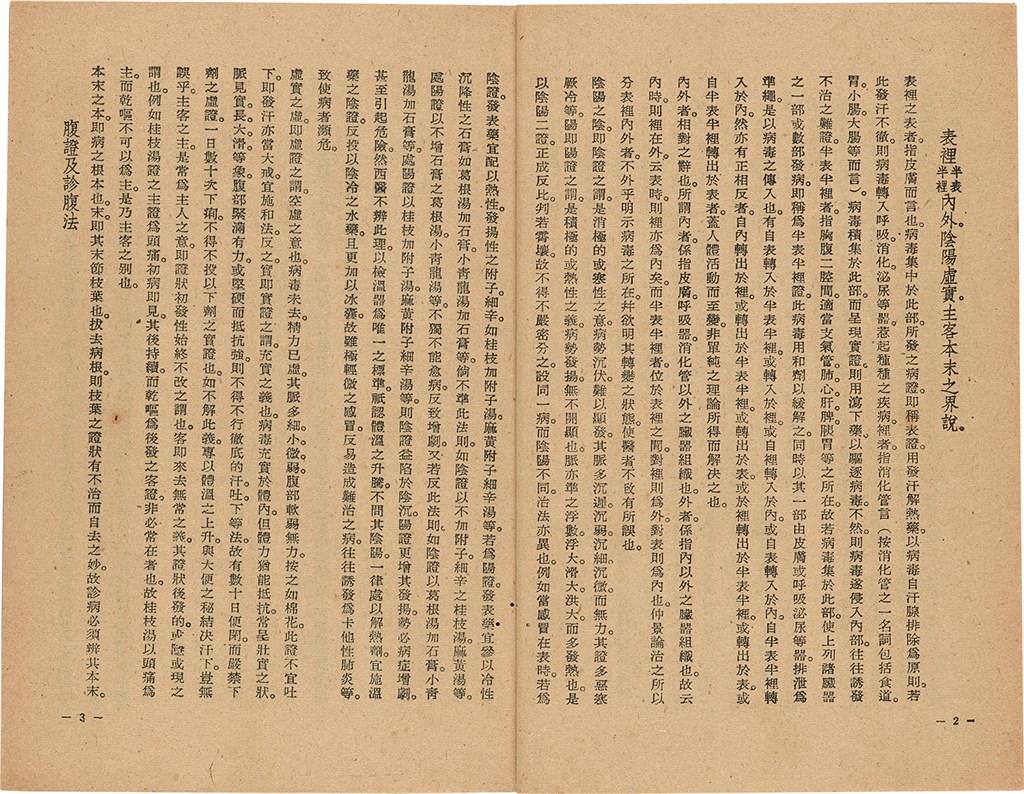 表裡半表半裡內外陰陽虛實主客本末之界說。
表裡之表者指皮膚而言也病毒集中於此部所發之病證即稱表證用發汗解熱藥以病毒自汗腺排除為原則若
此發汗不徹則病毒轉入呼吸消化泌尿等器惹起種種之疾病裡者指消化管言（按消化管之一名詞包括食道
胃小腸大腸等而言）病毒積集於此部而呈現實證則用瀉下藥以驅逐病毒不然則病毒遂侵入內部往往誘發
不治之難證半表半裡者指胸腹二腔間適當支氣管肺心肝脾胰胃等之所在故若病毒集於此部使上列諸臟器
之一部或數部發病即稱為半表半裡證此病毒用和劑以緩解之同時以其一部由皮膚或呼吸泌尿等器排泄為
準繩是以病毒之傳入也有自表轉入於半表半裡或轉入於裡或自表轉入於內自半表半裡轉
入於內然亦有正相反者自內轉出於裡或轉出於半表半裡或轉出於表或於裡轉出於半表半裡或轉出於表或
自半表半裡轉出於表者蓋人體活動而至變非單純之理論所得而解決之也。
內外者相對之辭也所謂內者係指皮膚呼吸器消化管以外之臟器組織也外者係指內以外之臟器組織也故云
內時則裡在外云表時則裡亦為內矣而半表半裡者位於表裡之間對裡則為外對表則為內也仲景論治之所以
分表裡內外者不外乎明示病毒之所在幷欲明其轉變之狀態使醫者不致有所誤也。
陰陽之陰即陰證之謂是消極的或寒性之意病勢沉伏難以顯發其脈多沉遲沉弱沉細沉微而無力其證多惡寒
厥冷等陽即陽證之謂是積極的或熱性之義病勢發揚無不開顯也脈亦準之浮數浮大滑大洪大而多發熱也是
以陰陽二證正成反比判若霄壤故不得不嚴密分之設同一病而陰陽不同治法亦異也例如當感冒在表時若為
— 2 —
陰證發表藥宜配以熱性發揚性之附子細辛如桂枝加附子湯麻黃附子細辛湯等若為陽證發表藥宜參以冷性
沉降性之石膏如葛根湯加石膏小青龍湯加石膏等倘不準此法則如陰證以不加附子細辛之桂枝湯麻黃湯等
處陽證以不增石膏之葛根湯小青龍湯等不獨不能愈病反致增劇又若反此法則如陰證以葛根湯加石膏小青
龍湯加石膏等處陽證以桂枝加附子湯麻黃附子細辛湯等則陰證益陷於陰沉陽證更增其發揚勢必病症增劇
甚至引起危險然西醫不辨此理以檢溫器為唯一之標準祇認體溫之升騰不問其陰陽一律處以解熱劑宜施溫
藥之陰證反投以陰冷之水藥且更加以冰囊故雖極輕微之感冒反易造成難治之病往往誘發為卡他性肺炎等
致使病者瀕危。
虛實之虛即虛證之謂空虛之意也病毒未去精力已虛其脈多細小微弱腹部軟弱無力按之如棉花此證不宜吐
下即發汗亦當大戒宜施和法反之實即實證之謂充實之義也病毒充實於體內但體力猶能抵抗常呈壯實之狀
脈見實長大滑等象腹部緊滿有力或堅硬而抵抗強則不得不行徹底的汗吐下等法故有數十日便閉而嚴禁下
劑之虛證一日數十次下痢不得不投以下劑之實證也如不解此義專以體溫之上升與大便之秘結決汗下豈無
誤乎主客之主是常為主人之意即證狀初發性始終不改之謂也客即來去無常之義其證狀後發的或隱或現之
謂也例如桂枝湯證之主證為頭痛初病即見其後持續而乾嘔為後發之客證非必常在者也故桂枝湯以頭痛為
主而乾嘔不可以為主是乃主客之別也。
本末之本即病之根本也末即其末節枝葉也拔去病根則枝葉之證狀有不治而自去之妙故診病必須辨其本末。
腹證及診腹法
— 3 —